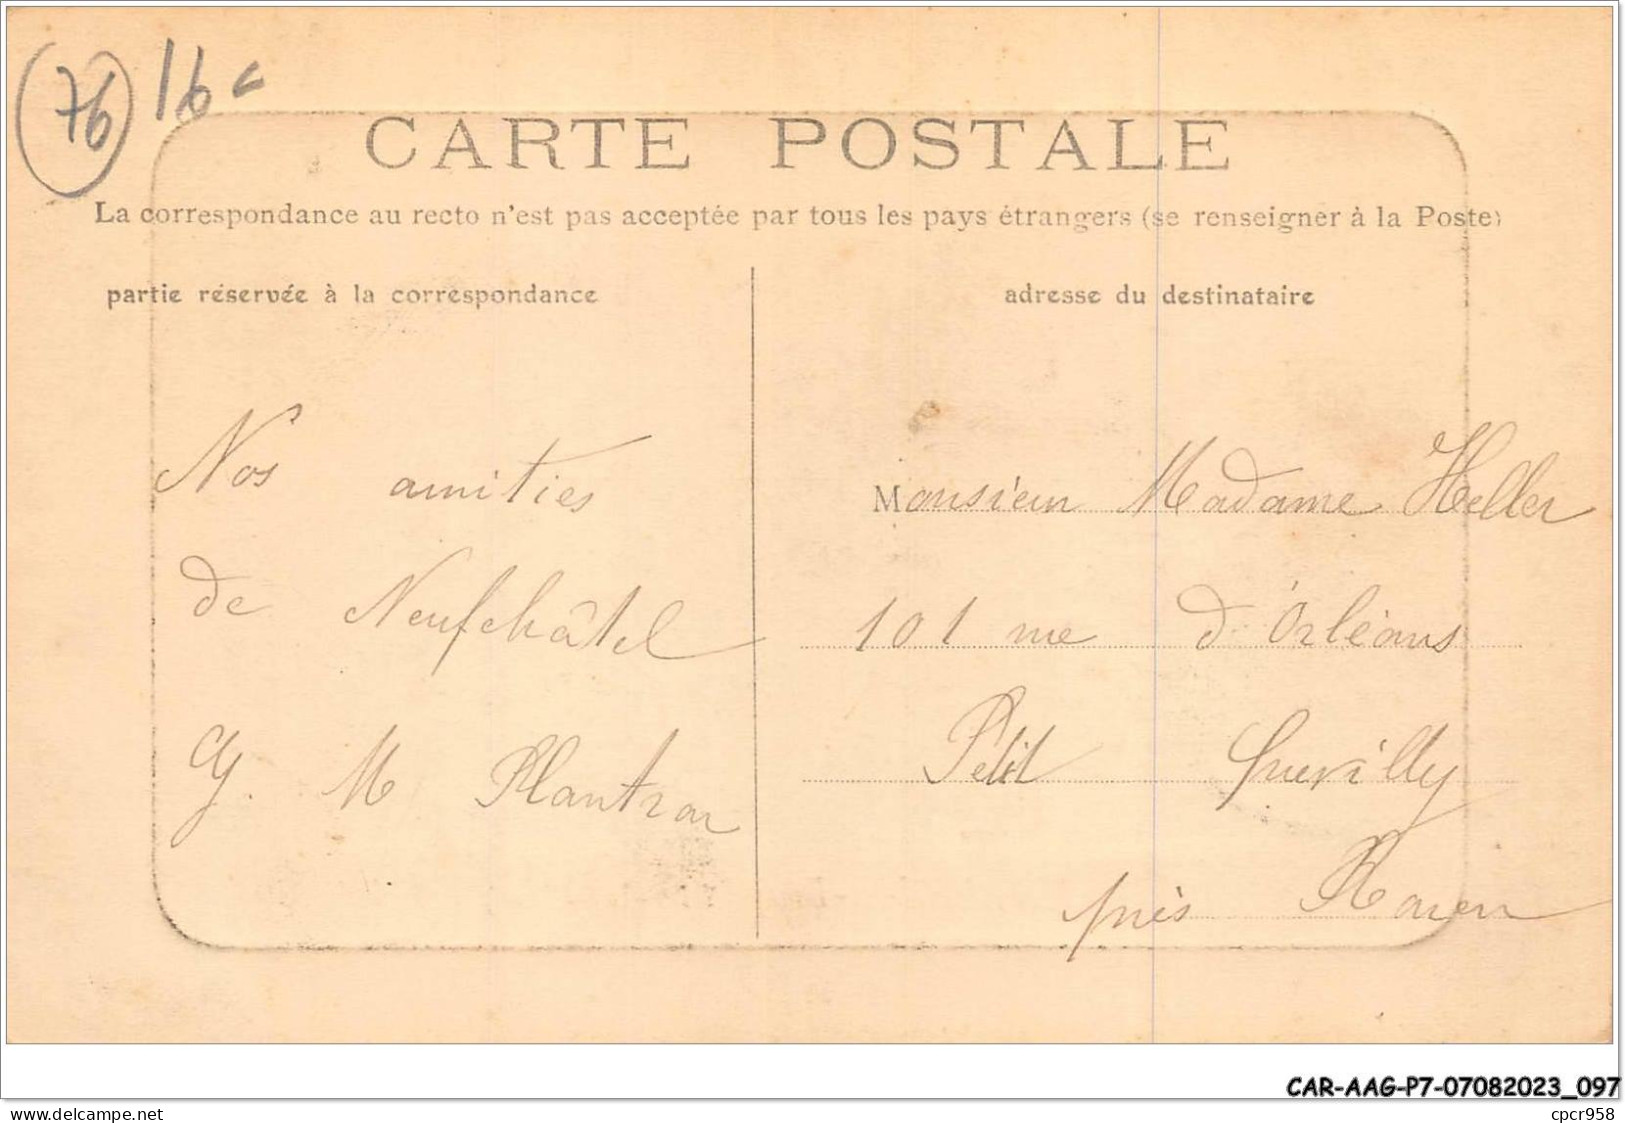 76
16
CARTE POSTALE
La correspondance au recto n'est pas acceptée par tous les pays étrangers (se renseigner à la Poste)
partie réservée à la correspondance
adresse du destinataire
Nos amitiés
de Neufchâtel
G. M Plantrou
Monsieur Madame Heller
101 rue d'Orléans
Petit Quevilly
près Rouen
CAR-AAG-P7-07082023_097
https://www.delcampe.net/fr/collections/store/cartophilie-litteraire
cpcr958